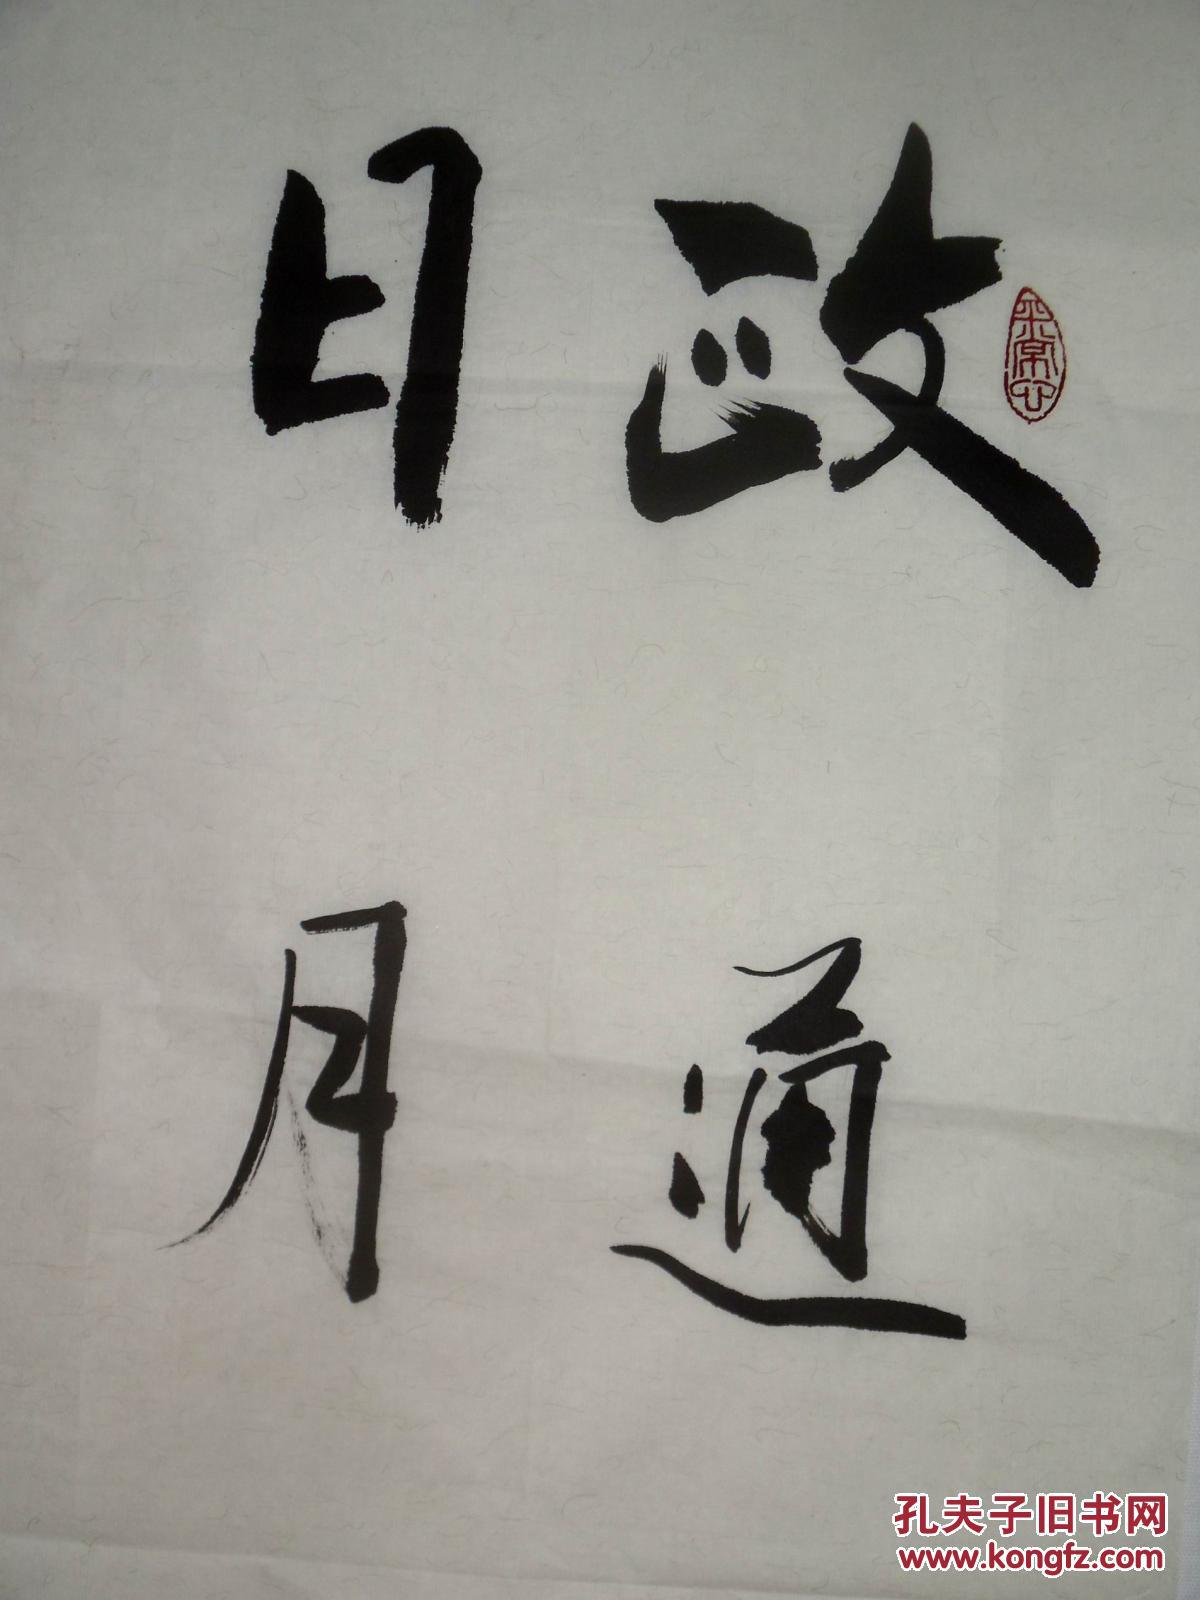 政通
日月
平常心
孔夫子旧书网
www.kongfz.com